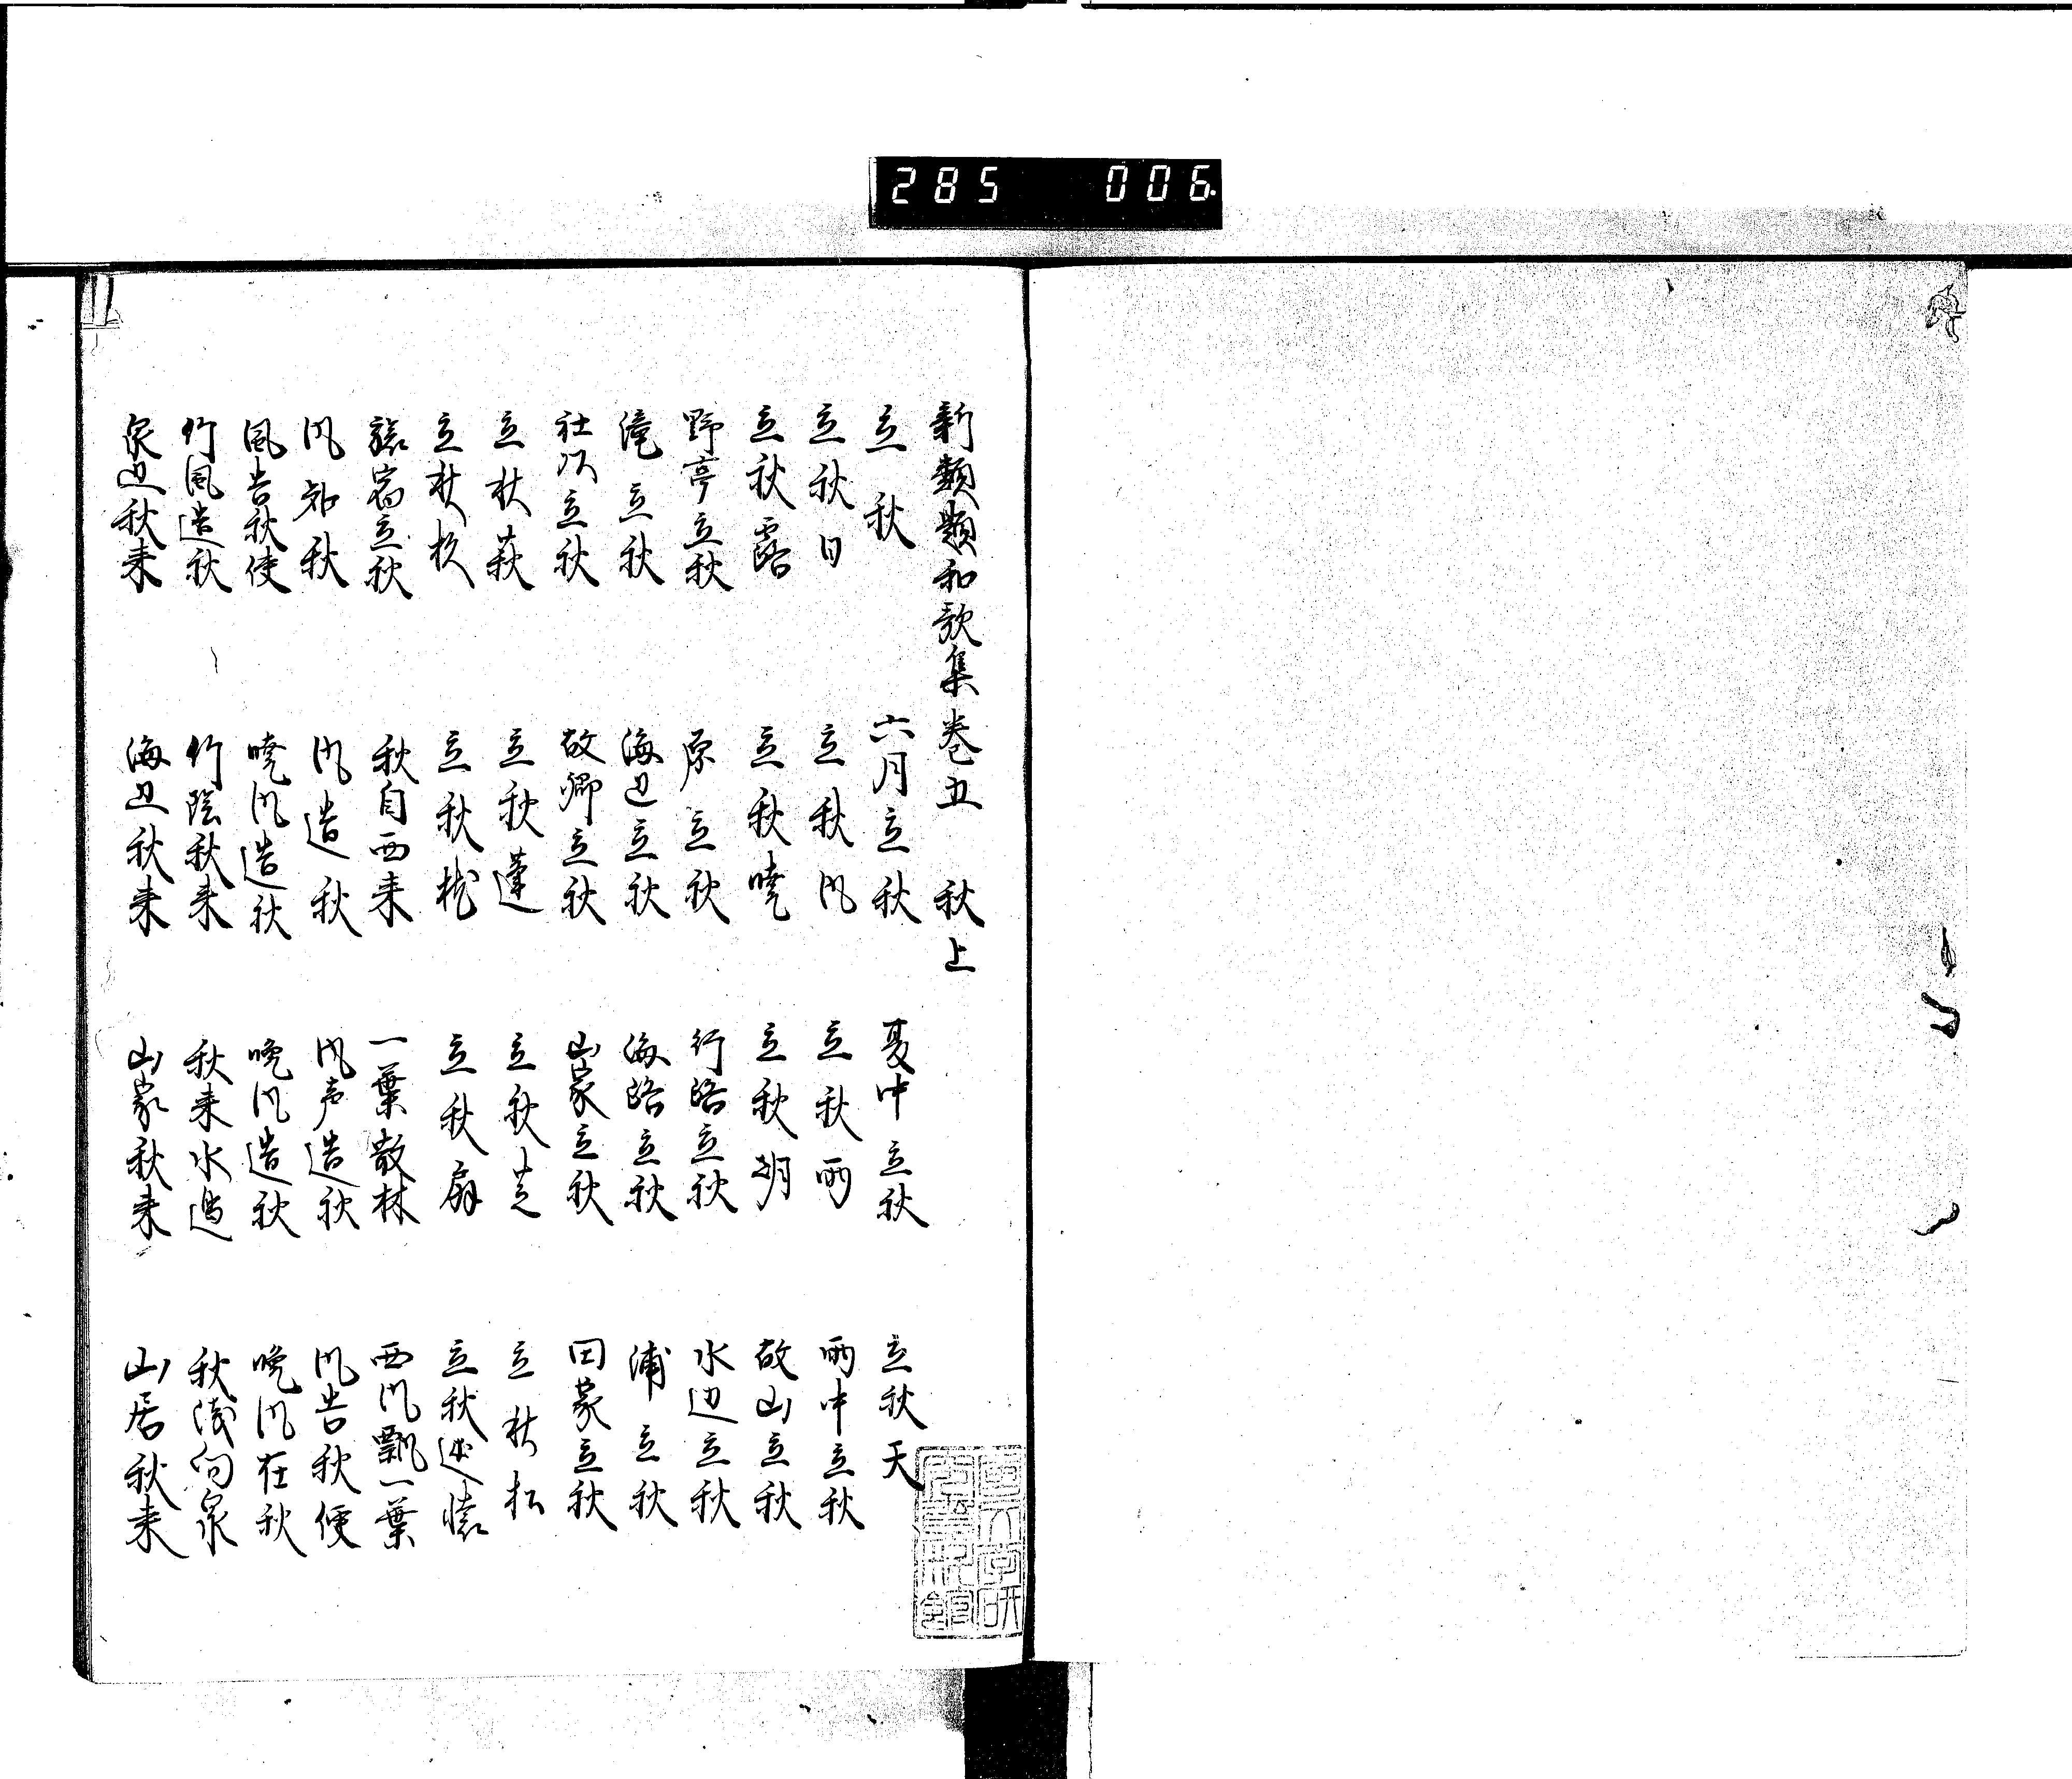 285 006
新類題和歌集巻五 秋上
立秋 六月立秋 夏中立秋 立秋天
立秋日 立秋風 立秋雨 雨中立秋
立秋露 立秋暁 立秋朝 故山立秋
野亭立秋 原立秋 行路立秋 水辺立秋
滝立秋 海辺立秋 海路立秋 浦立秋
社頭立秋 故郷立秋 山家立秋 田家立秋
立秋萩 立秋蓬 立秋芝 立秋松
立秋杉 立秋 立秋扇 立秋述懐
旅宿立秋 秋自西来 一葉散林 西風飄一葉
風知秋 風告秋 風声告秋 風告秋使
風告秋使 暁風告秋 晩風告秋 晩風在秋
竹風告秋 竹陰秋来 秋来水辺 秋浅向泉
泉辺秋来 海辺秋来 山家秋来 山居秋来